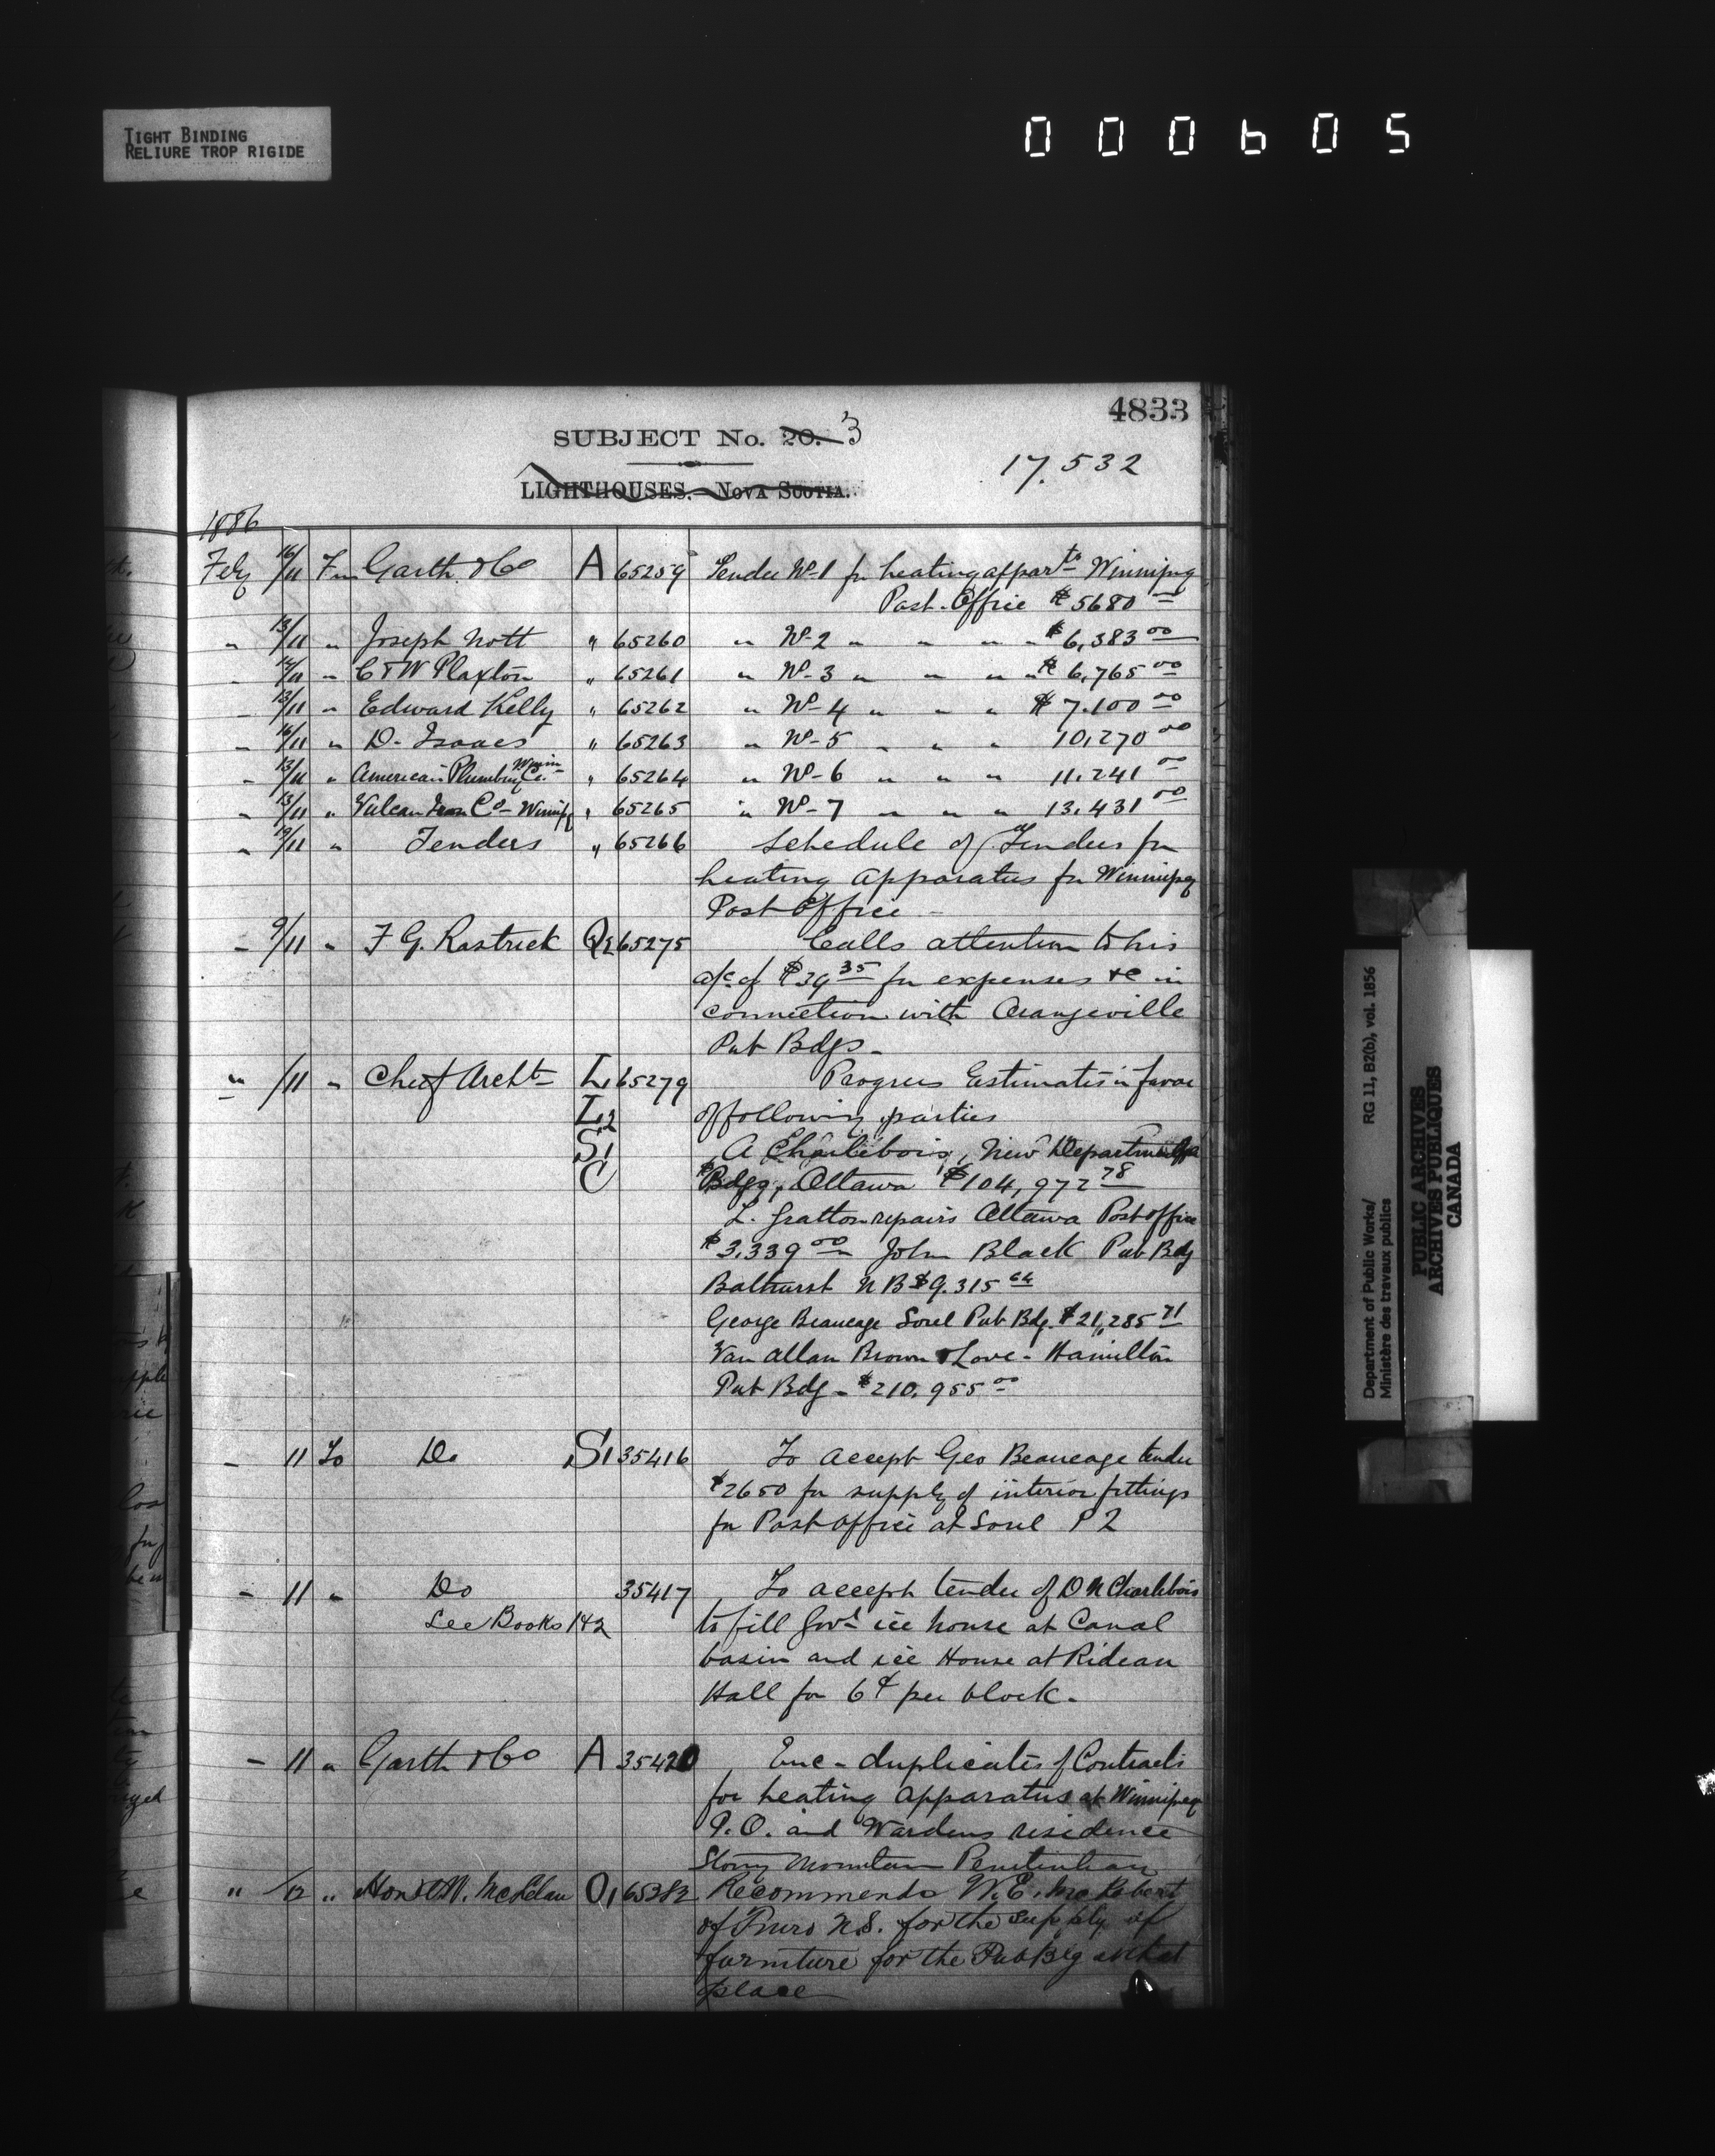 TIGHT BINDING
RELIURE TROP RIGIDE
000605
4833
SUBJECT No. 20. 3
17.532
LIGHTHOUSES.—NOVA SCOTIA.
1886
Feby 16/11 Fm Garth & Co A 65259 Tender No 1 for heating appar'ts Winnipeg
Post-Office $5680 00
" 13/11 " Joseph Nott " 65260 " No-2 " " " " $6,383 00
" 12/11 " C & W Plaxton " 65261 " No-3 " " " " $6,765 00
" 13/11 " Edward Kelly " 65262 " No-4 " " " $7.100 00
" 16/11 " D. Isaacs " 65263 " No-5 " " " 10,270 00
" 13/11 " American Plumbing Co. Winn " 65264 " No-6 " " " 11.241 00
" 13/11 " Vulcan Iron Co - Winnipg " 65265 " No-7 " " " 13.431 00
" 19/11 " Tenders " 65266 Schedule of Tenders for
heating apparatus for Winnipeg
Post Office -
" 9/11 " F G. Rastrick Q2 65275 Calls attention to his
a/c of $39 35 for expenses &c in
connection with Orangeville
Pub Bdgs -
" /11 " Chief Archt L1 65279 Progress Estimates in favor
L2 of following parties
S1 A Charlebois, New Departmental
C Bdgs, Ottawa $104,972 78
L. Gratton repairs Ottawa Post office
$3.339 00 John Black Pub Bdg
Bathurst N B $9.315 64
George Beaucage Sorel Pub Bdg. $21,285 71
Van Allan Brown & Love - Hamilton
Pub Bdg - $210.955 00
" 11 To Do S1 35416 To accept Geo Beaucage tender
$2650 for supply of interior fittings
for Post office at Sorel P 2
" 11 " Do 35417 To accept tender of O N Charlebois
See Books 1&2 to fill Govt ice house at Canal
basin and ice House at Rideau
Hall for 6¢ per block.
" 11 " Garth & Co A 35420 Enc - duplicates of Contracts
for heating apparatus at Winnipeg
P.O. and Wardens residence
Stony Mountain Penitentiary
" /12 " Hon A W. McLelan O1 65382 Recommends W. E.
of Truro N.S. for the supply of
furniture for the Pub Bdg at that
place
Department of Public Works/
Ministère des travaux publics
RG 11, B2(b), vol. 1856
PUBLIC ARCHIVES
ARCHIVES PUBLIQUES
CANADA